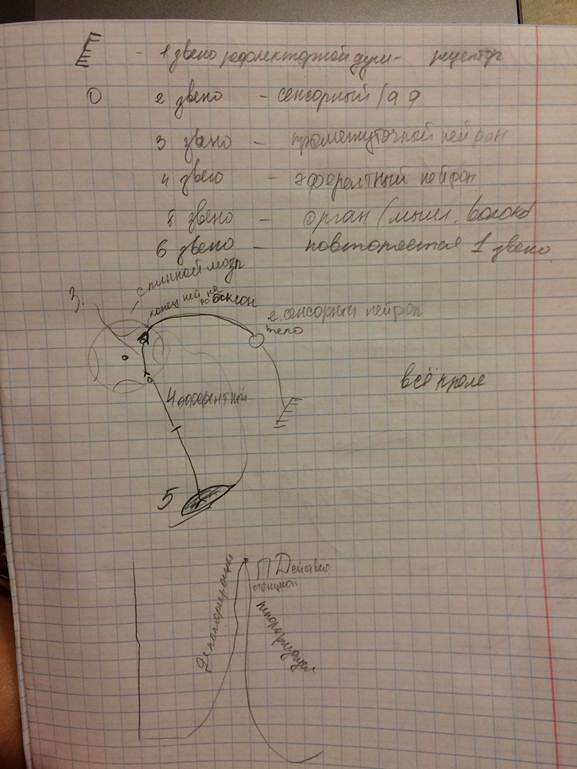 - 1 звено рефлекторной дуги - рецептор
2 звено - сенсорный /
3 звено - промежуточной нейрон
4 звено - эфферентный нейрон
5 звено - орган (мышц. волокно)
6 звено - повторяется 1 звено
спинной мозг
3.
аксон
2. сенсорный нейрон
тело
всё кроме
4
5
Деполяризация
П Действ
реполяризация